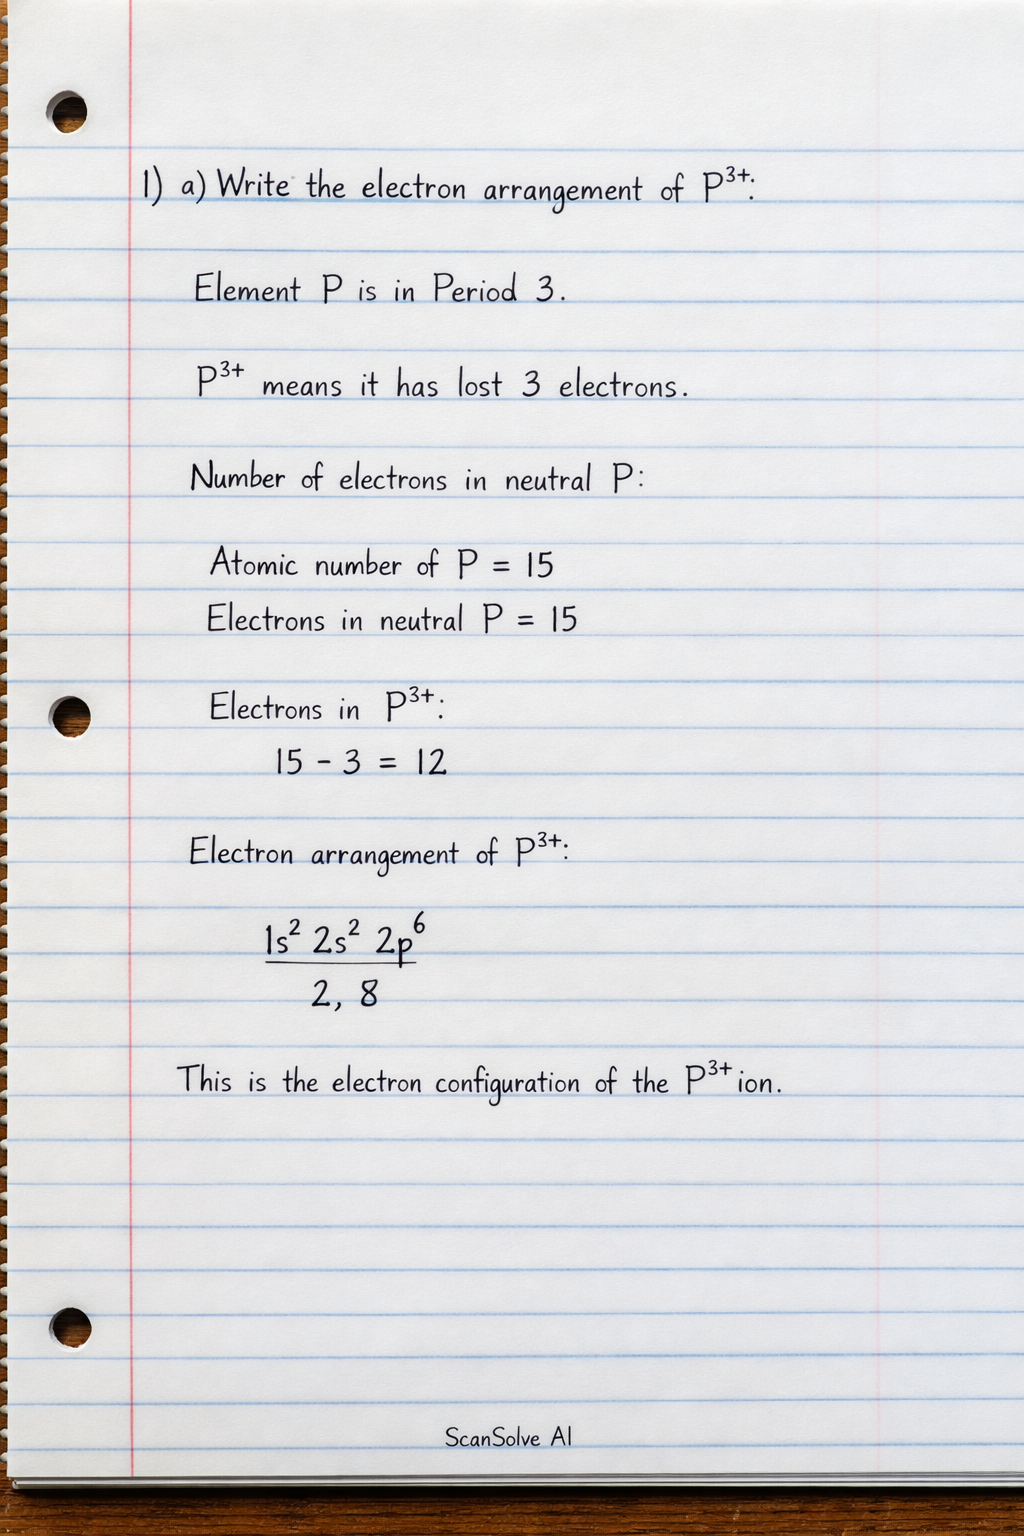 1) a) Write the electron arrangement of P³⁺:
Element P is in Period 3.
P³⁺ means it has lost 3 electrons.
Number of electrons in neutral P:
Atomic number of P = 15
Electrons in neutral P = 15
Electrons in P³⁺:
15 - 3 = 12
Electron arrangement of P³⁺:
1s² 2s² 2p⁶
2, 8
This is the electron configuration of the P³⁺ ion.
ScanSolve AI